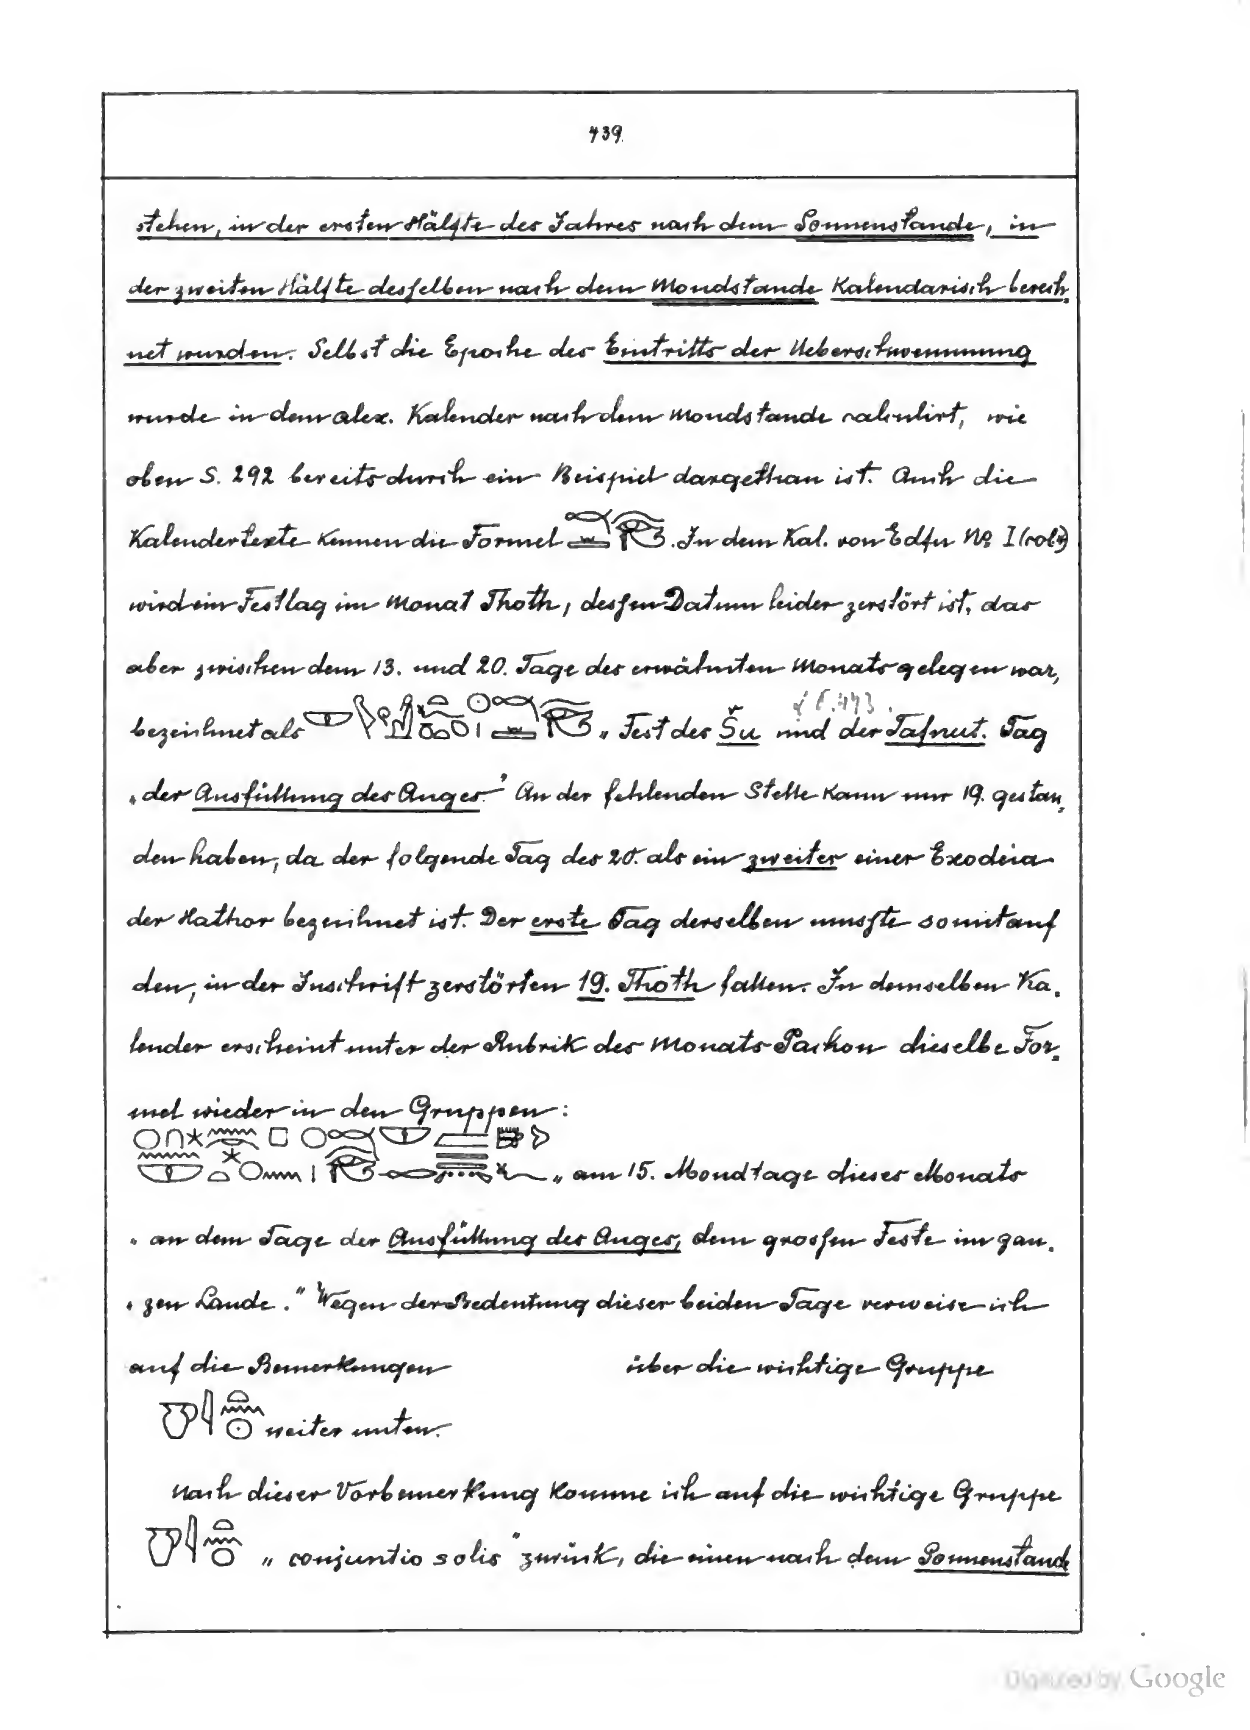 439.
stehen, in der ersten Hälfte des Jahres nach dem Sonnenstande, in
der zweiten Hälfte desselben nach dem Mondstande Kalendarisch berech-
net wurden. Selbst die Epoche des Eintritts der Ueberschwemmung
wurde in dem alex. Kalender nach dem Mondstande calculirt, wie
oben S. 292 bereits durch ein Beispiel dargethan ist. Auch die
Kalendertexte Kennen die Formel . In dem Kal. von Edfu No I
wird ein Festtag im Monat Thoth, dessen Datum leider zerstört ist, das
aber zwischen dem 13. und 20. Tage des erwähnten Monats gelegen war,
bezeichnet als „Fest des Šu und der Tafnut. Tag
„der Ausfüllung des Auges." An der fehlenden Stelle Kann nur 19. gestan-
den haben, da der folgende Tag des 20. als ein zweiter einer Exodeia
der Hathor bezeichnet ist. Der erste Tag derselben musste somit auf
den, in der Inschrift zerstörten 19. Thoth fallen. In demselben Ka-
lender erscheint unter der Rubrik des Monats Pachon dieselbe For-
mel wieder in den Gruppen:
„am 15. Mondtage dieses Monats
„an dem Tage der Ausfüllung des Auges, dem grossen Feste im gan-
„zen Lande." Wegen der Bedeutung dieser beiden Tage verweise ich
auf die Bemerkungen über die wichtige Gruppe
weiter unten.
Nach dieser Vorbemerkung Komme ich auf die wichtige Gruppe
„conjunctio solis" zurück, die einen nach dem Sonnenstande
Digitized by Google